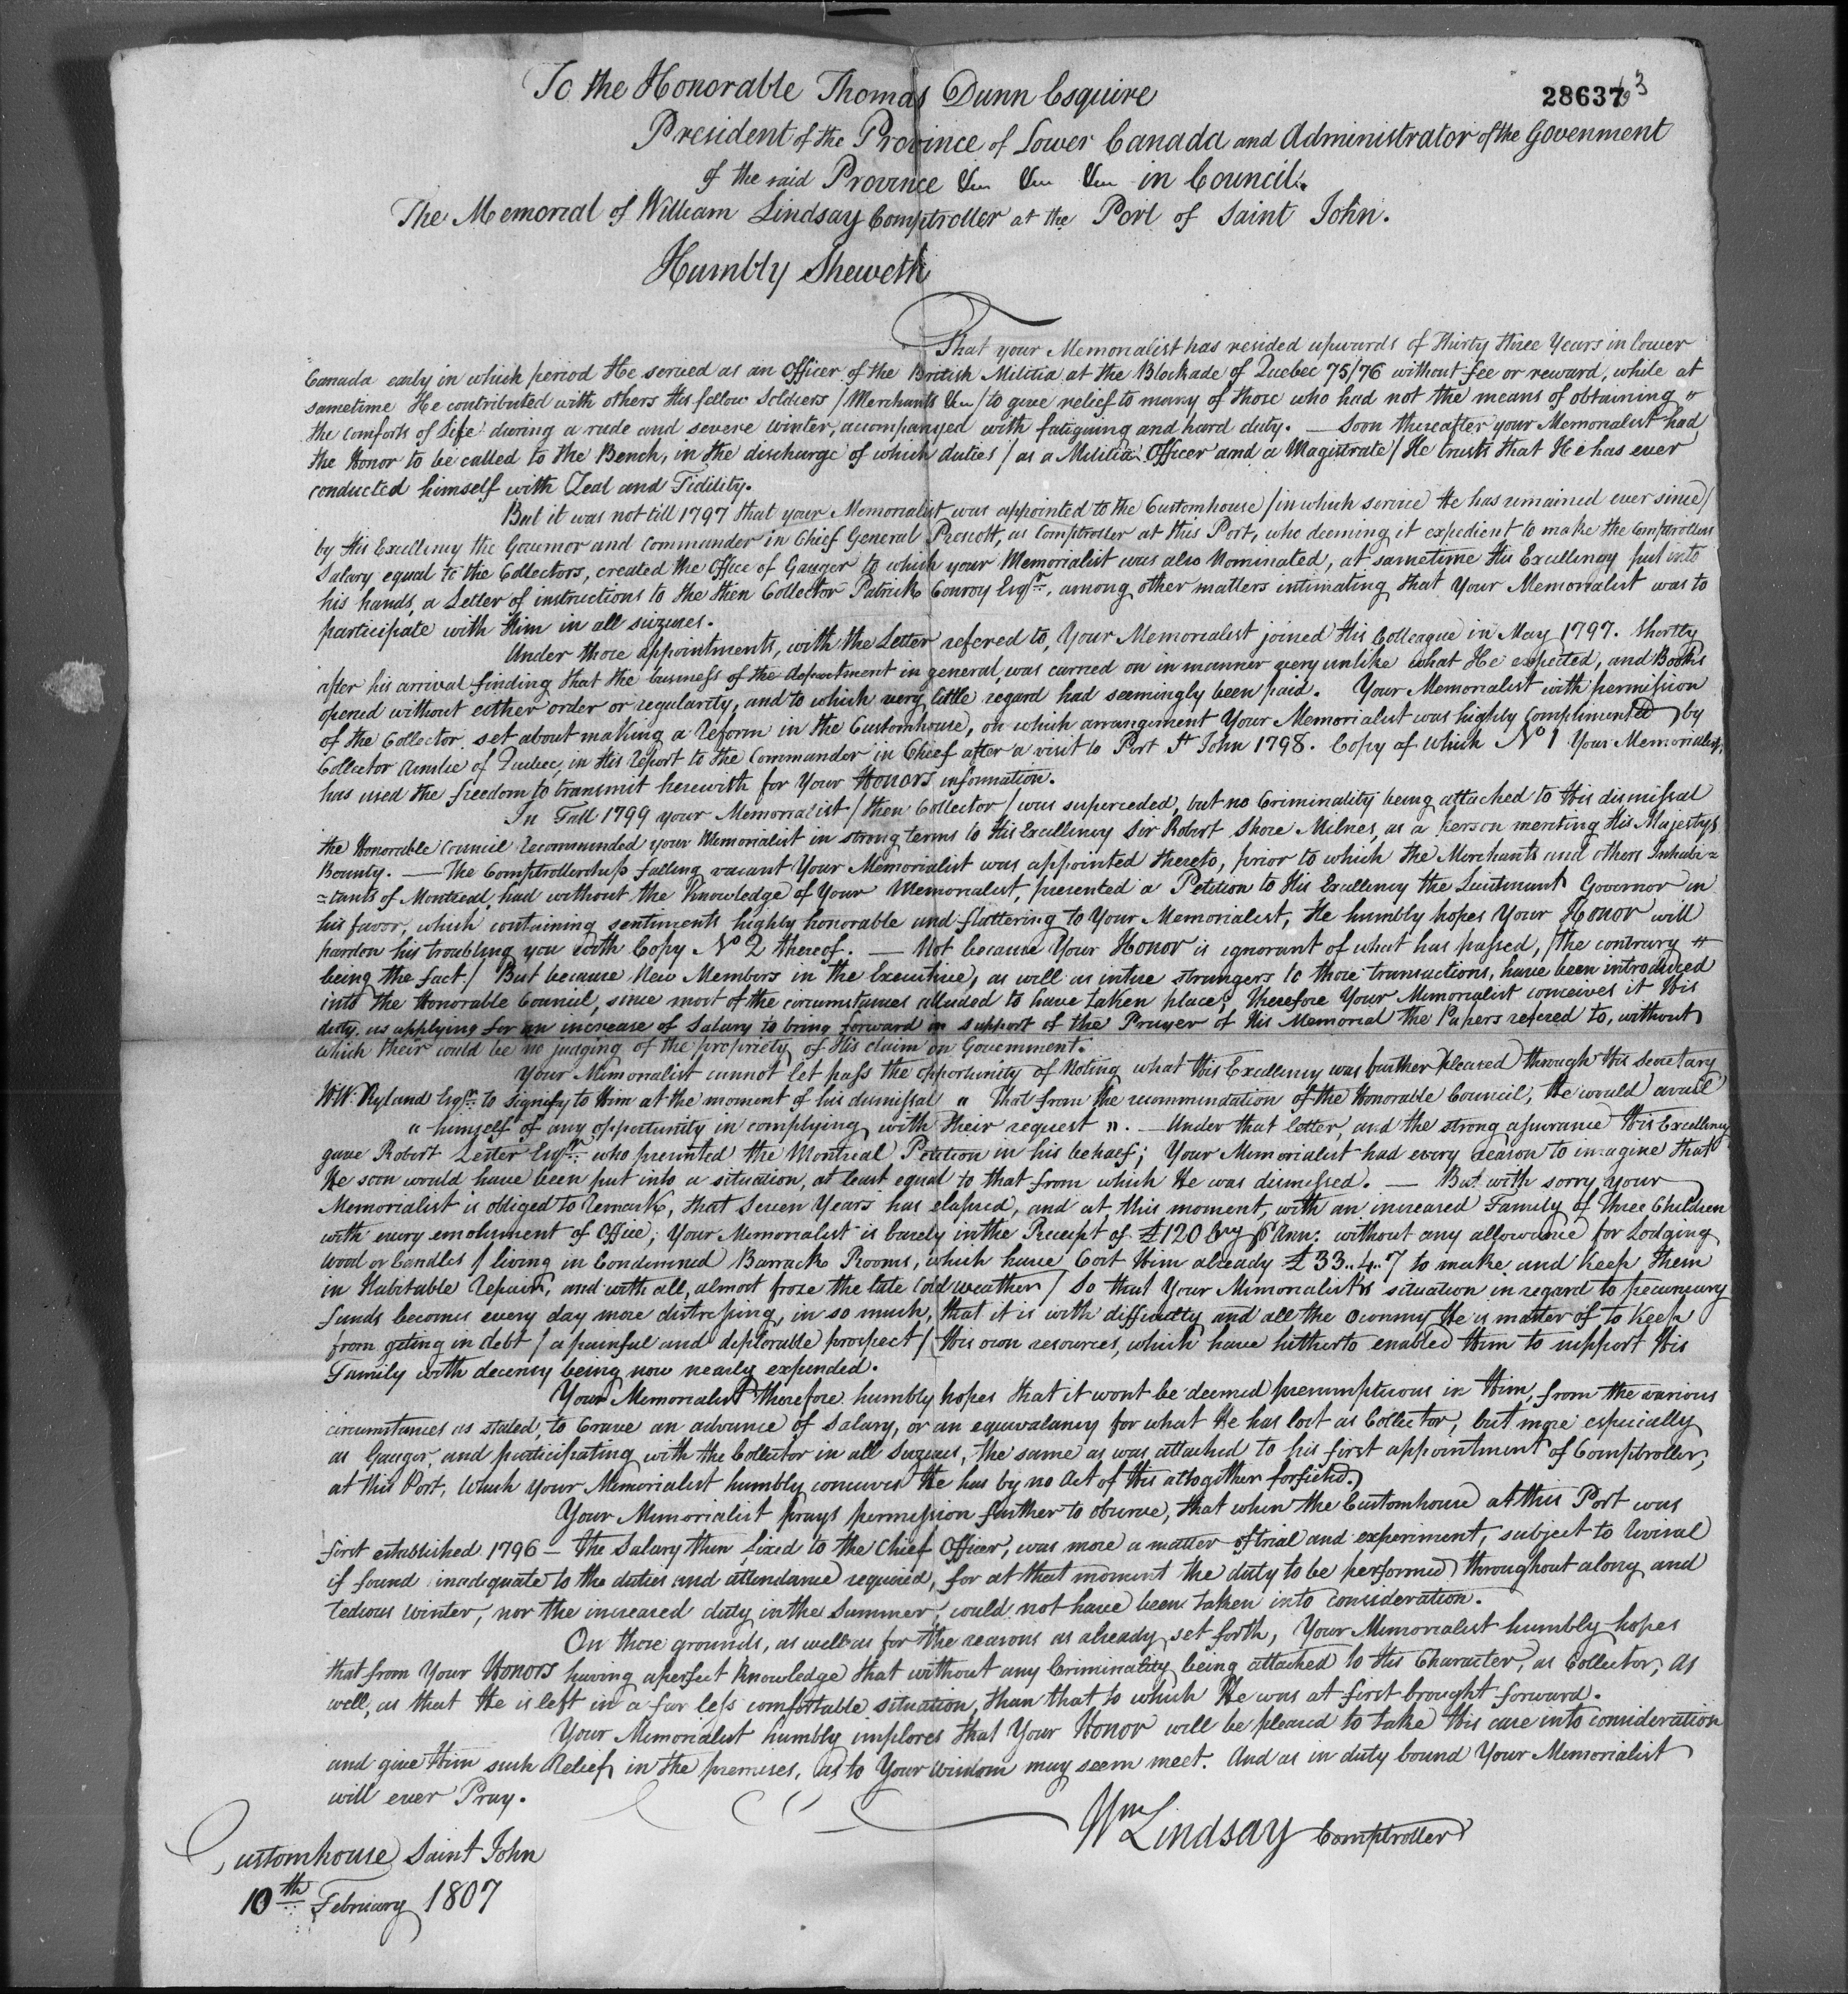 28637
To the Honorable Thomas Dunn Esquire
President of the Province of Lower Canada and Administrator of the Govenment
of the said Province &c &c &c in Council.
The Memorial of William Lindsay Comptroller at the Port of Saint John.
Humbly Sheweth
That your Memorialist has resided upwards of Thirty three Years in Lower
Canada early in which period He served as an Officer of the British Militia at the Blockade of Quebec 75/76 without fee or reward, while at
sametime He contributed with others His fellow Soldiers / Merchants &c / to give relief to many of those who had not the means of obtaining "
the comforts of Life during a rude and severe Winter, acompanyed with fatiguing and hard duty. — Soon thereafter your Memorialist had
the Honor to be called to the Bench, in the discharge of which duties / as a Militia Officer and a Magistrate / He trusts that He has ever
conducted himself with Zeal and Fidility.
But it was not till 1797 that your Memorialist was appointed to the Customhouse / in which service He has remained ever since /
by His Excellency the Governor and Commander in Chief General Prescott, as Comptroller at this Port, who deeming it expedient to make the Comptrollers
Salary equal to the Collectors, created the Office of Gauger to which your Memorialist was also Nominated, at sametime His Excellency put into
his hands a Letter of instructions to the then Collector Patrick Conroy Esqr. among other matters intimating that Your Memorialist was to
participate with Him in all siezures.
Under those appointments, with the Letter refered to, Your Memorialist joined His Colleague in May 1797. Shortly
after his arrival finding that the business of the department in general, was carried on in manner very unlike what He expected, and Books
opened without either order or regularity, and to which very little regard had seemingly been paid. Your Memorialist with permission
of the Collector set about making a reform in the Customhouse, on which arrangement Your Memorialist was highly complimented by
Collector Ainslie of Quebec, in His report to the Commander in Chief after a visit to Port St John 1798. Copy of which No 1 Your Memorialist,
has used the freedom to transmit herewith for Your Honors information.
In Fall 1799 your Memorialist / then Collector / was superceded, but no Criminality being attached to His dismissal
the Honorable Council recommended your Memorialist in strong terms to His Excellency Sir Robert Shore Milnes, as a person meriting His Majestys
Bounty. — The Comptrollership falling vacant Your Memorialist was appointed thereto, prior to which the Merchants and others Inhabi=
=tants of Montreal, had without the Knowledge of Your Memorialist, presented a Petition to His Excellency the Lieutenant Governor in
his favor, which containing sentiments highly honorable and flattering to Your Memorialist, He humbly hopes Your Honor will
pardon his troubling you with Copy No 2 thereof. — Not because Your Honor is ignorant of what has passed, / the contrary "
being the fact / But because New Members in the Executive, as well as intire strangers to those transactions, have been introduced
into the Honorable Council, since most of the circumstances alluded to have taken place; therefore Your Memorialist conceives it His
duty as applying for an increase of Salary to bring forward in support of the Prayer of His Memorial the Papers refered to, without
which their could be no judging of the propriety of His claim on Government.
Your Memorialist cannot let pass the opportunity of Noting what His Excellency was further pleased through His Secretary
H.W. Ryland Esqr. to signify to Him at the moment of his dismissal " That from the recommendation of the Honorable Council, He would avail
" himself of any opportunity in complying with their request ". — Under that letter, and the strong assurance His Excellency
gave Robert Lester Esqr. who presented the Montreal Petition in his behalf; Your Memorialist had every reason to imagine that
He soon would have been put into a situation, at least equal to that from which He was dismissed. — But with sorry your
Memorialist is obliged to remark, that Seven Years has elapsed, and at this moment, with an increased Family of Three Children
with every emolument of Office; Your Memorialist is barely in the Receipt of £120 Cry P Ann: without any allowance for Lodging
Wood or Candles / living in Condemned Barrack Rooms, which have Cost Him already £33..4..7 to make and keep them
in Habitable repair, and with all, almost froze the late Cold weather / So that Your Memorialist's situation in regard to pecuniary
funds becomes every day more distressing, in so much, that it is with difficulty and all the Oconomy He is master of to keep
from geting in debt / a painful and deplorable prospect / His own resources, which have hitherto enabled Him to support His
Family with decency being now nearly expended.
Your Memorialist therefore humbly hopes that it wont be deemed presumptuous in Him, from the various
circumstances as stated, to Crave an advance of Salary, or an equavalancy for what He has lost as Collector, but more especially
as Gauger, and participating with the Collector in all Siezures, the same as was attached to his first appointment of Comptroller,
at this Port, Which your Memorialist humbly conceives He has by no Act of His altogither forfieted.
Your Memorialist prays permission further to observe, that when the Customhouse at this Port was
first established 1796 — the Salary then fixed to the Chief Officer, was more a matter of trial and experiment, subject to revisal
if found inadequate to the duties and attendance required, for at that moment the duty to be performed throughout a long and
tedious Winter, nor the increased duty in the Summer, could not have been taken into consideration.
On those grounds, as well as for the reasons as already set forth, Your Memorialist humbly hopes
that from Your Honors having a perfect Knowledge that without any Criminality being attached to His Character, as Collector, as
well, as that He is left in a far less comfortable situation, than that to which He was at first brought forward.
Your Memorialist humbly implores that Your Honor will be pleased to take His case into consideration
and give Him such Relief in the premises, as to Your Wisdom may seem meet. And as in duty bound Your Memorialist
will ever Pray.
Wm Lindsay Comptroller
Customhouse Saint John
10th February 1807